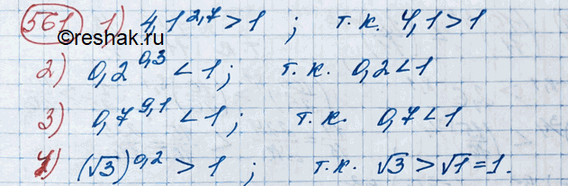 561 1) 4,1^2,7 > 1 ; т.к. 4,1 > 1
©reshak.ru
2) 0,2^0,3 < 1; т.к. 0,2 < 1
3) 0,7^0,1 < 1; т.к. 0,7 < 1
4) (√3)^0,2 > 1 ; т.к. √3 > √1 = 1.